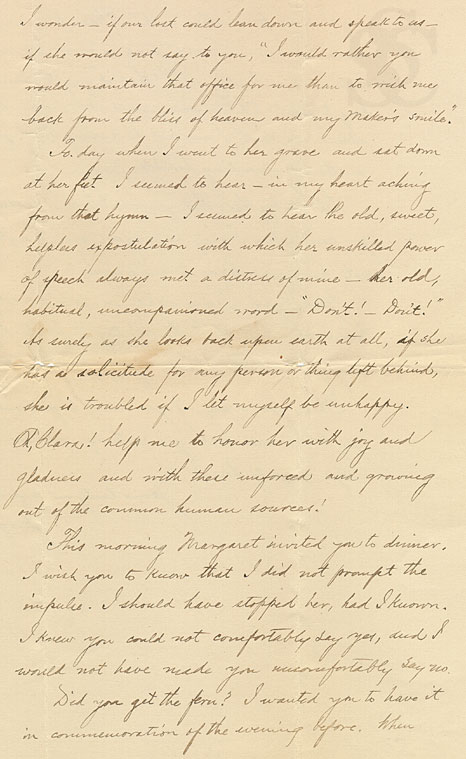 I wonder – if our lost could lean down and speak to us –
if she would not say to you, "I would rather you
would maintain that office for me than to wish me
back from the bliss of heaven and my Maker's smile."
To-day when I went to her grave and sat down
at her feet I seemed to hear – in my heart aching
from that hymn – I seemed to hear the old, sweet,
helpless expostulation with which her unskilled power
of speech always met a distress of mine – her old,
habitual, uncompanioned word – "Don't! – Don't!"
As surely as she looks back upon earth at all, if she
has a solicitude for any person or thing left behind,
she is troubled if I let myself be unhappy.
O, Clara! help me to honor her with joy and
gladness and with these unforced and growing
out of the common human sources!
This morning Margaret invited you to dinner.
I wish you to know that I did not prompt the
impulse. I should have stopped her, had I known.
I knew you could not comfortably say yes, and I
would not have made you uncomfortably say no.
Did you get the fern? I wanted you to have it
in commemoration of the evening before. When